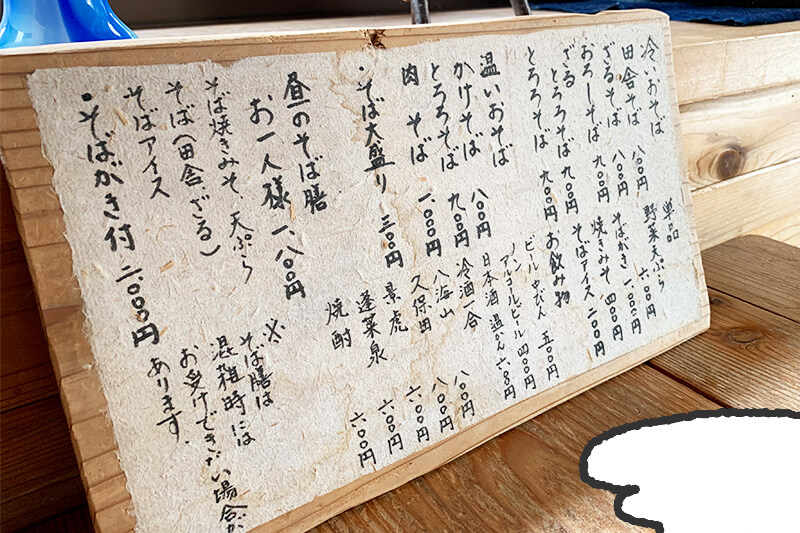 冷いおそば
田舎そば 八〇〇円
ざるそば 八〇〇円
おろしそば 九〇〇円
ざる
とろろそば 九〇〇円
とろろそば 九〇〇円
温いおそば
かけそば 八〇〇円
とろろそば 九〇〇円
肉そば 一、〇〇〇円
・そば大盛り 三〇〇円
単品
野菜天ぷら 六〇〇円
そばがき 一、〇〇〇円
焼きみそ 四〇〇円
そばアイス 二〇〇円
お飲み物
ビール中びん 五〇〇円
ノン
アルコールビール 四〇〇円
日本酒 温かん 六〇〇円
冷酒一合
八海山 八〇〇円
久保田 八〇〇円
景虎 六〇〇円
蓬莱泉 六〇〇円
焼酎 六〇〇円
昼のそば膳
お一人様 一、八〇〇円
そば焼きみそ、天ぷら
そば(田舎、ざる)
そばアイス
・そばがき付 二、〇〇〇円
※そば膳は
混雑時には
お受けできない場合が
あります。